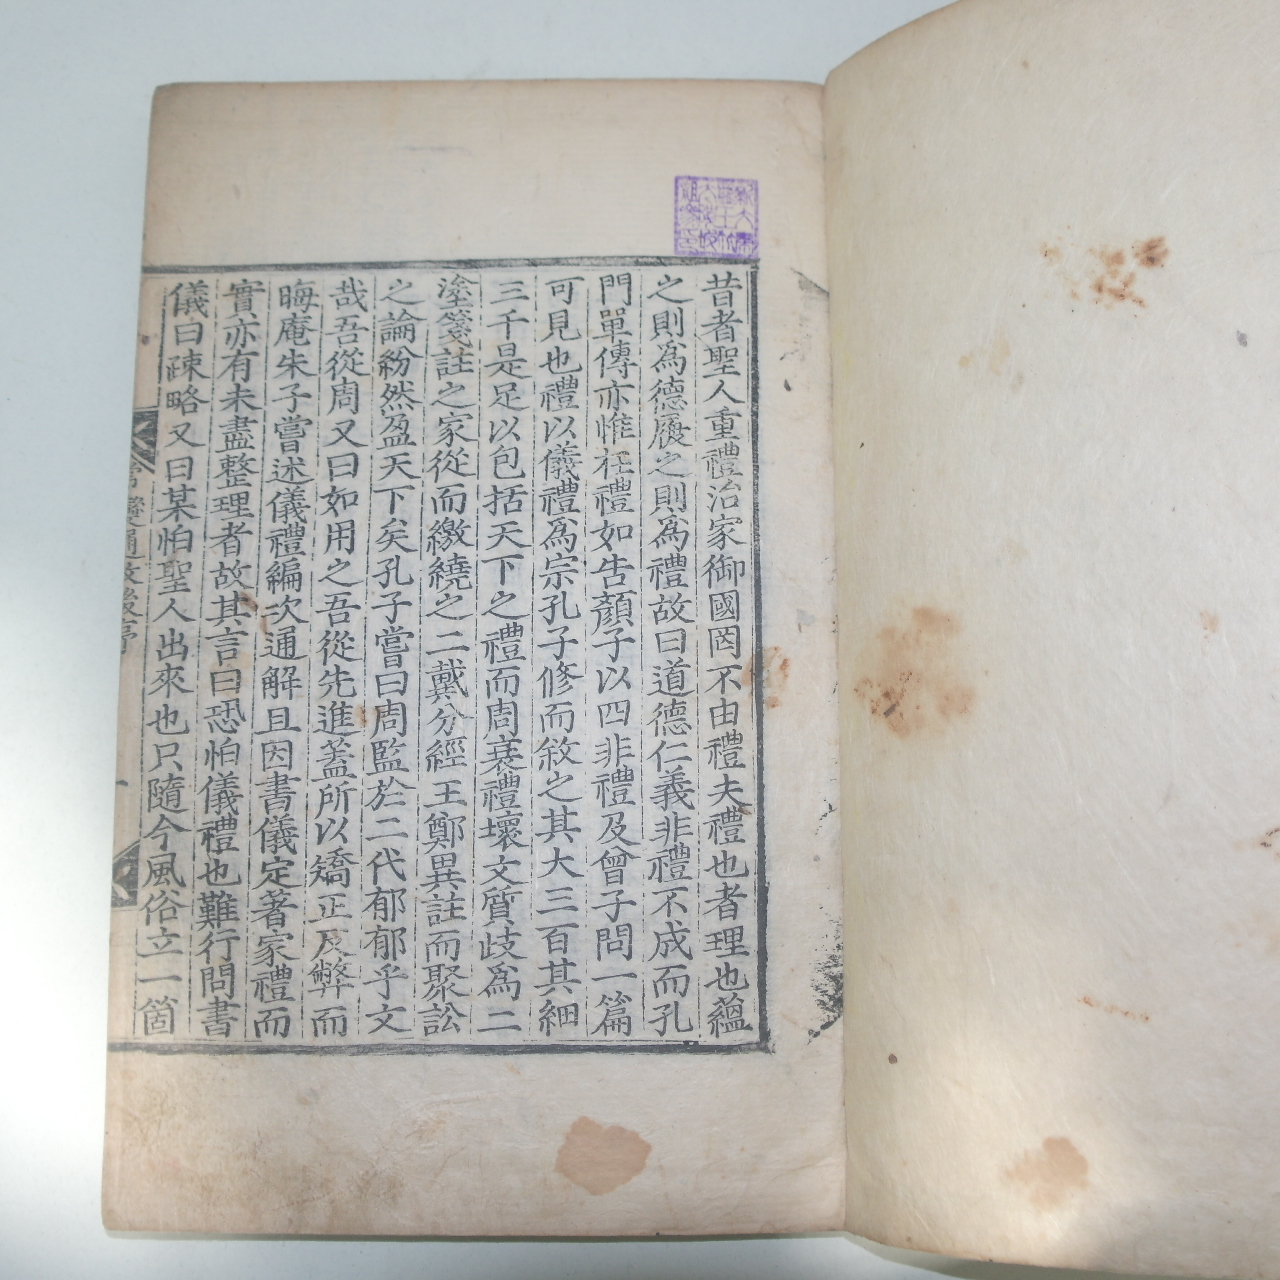 昔者聖人重禮治家御國罔不由禮夫禮也者理也蘊
之則爲德履之則爲禮故曰道德仁義非禮不成而孔
門單傳亦惟在禮如告顏子以四非禮及曾子問一篇
可見也禮以儀禮爲宗孔子修而敘之其大三百其細
三千是足以包括天下之禮而周衰禮壞文質歧爲二
塗箋註之家從而繳繞之二戴分經王鄭異註而聚訟
之論紛然盈天下矣孔子嘗曰周監於二代郁郁乎文
哉吾從周又曰如用之吾從先進蓋所以矯正反弊而
晦庵朱子嘗述儀禮編次通解且因書儀定著家禮而
實亦有未盡整理者故其言曰恐怕儀禮也難行問書
儀曰疎略又曰某怕聖人出來也只隨今風俗立一箇
常變通攷後序
一